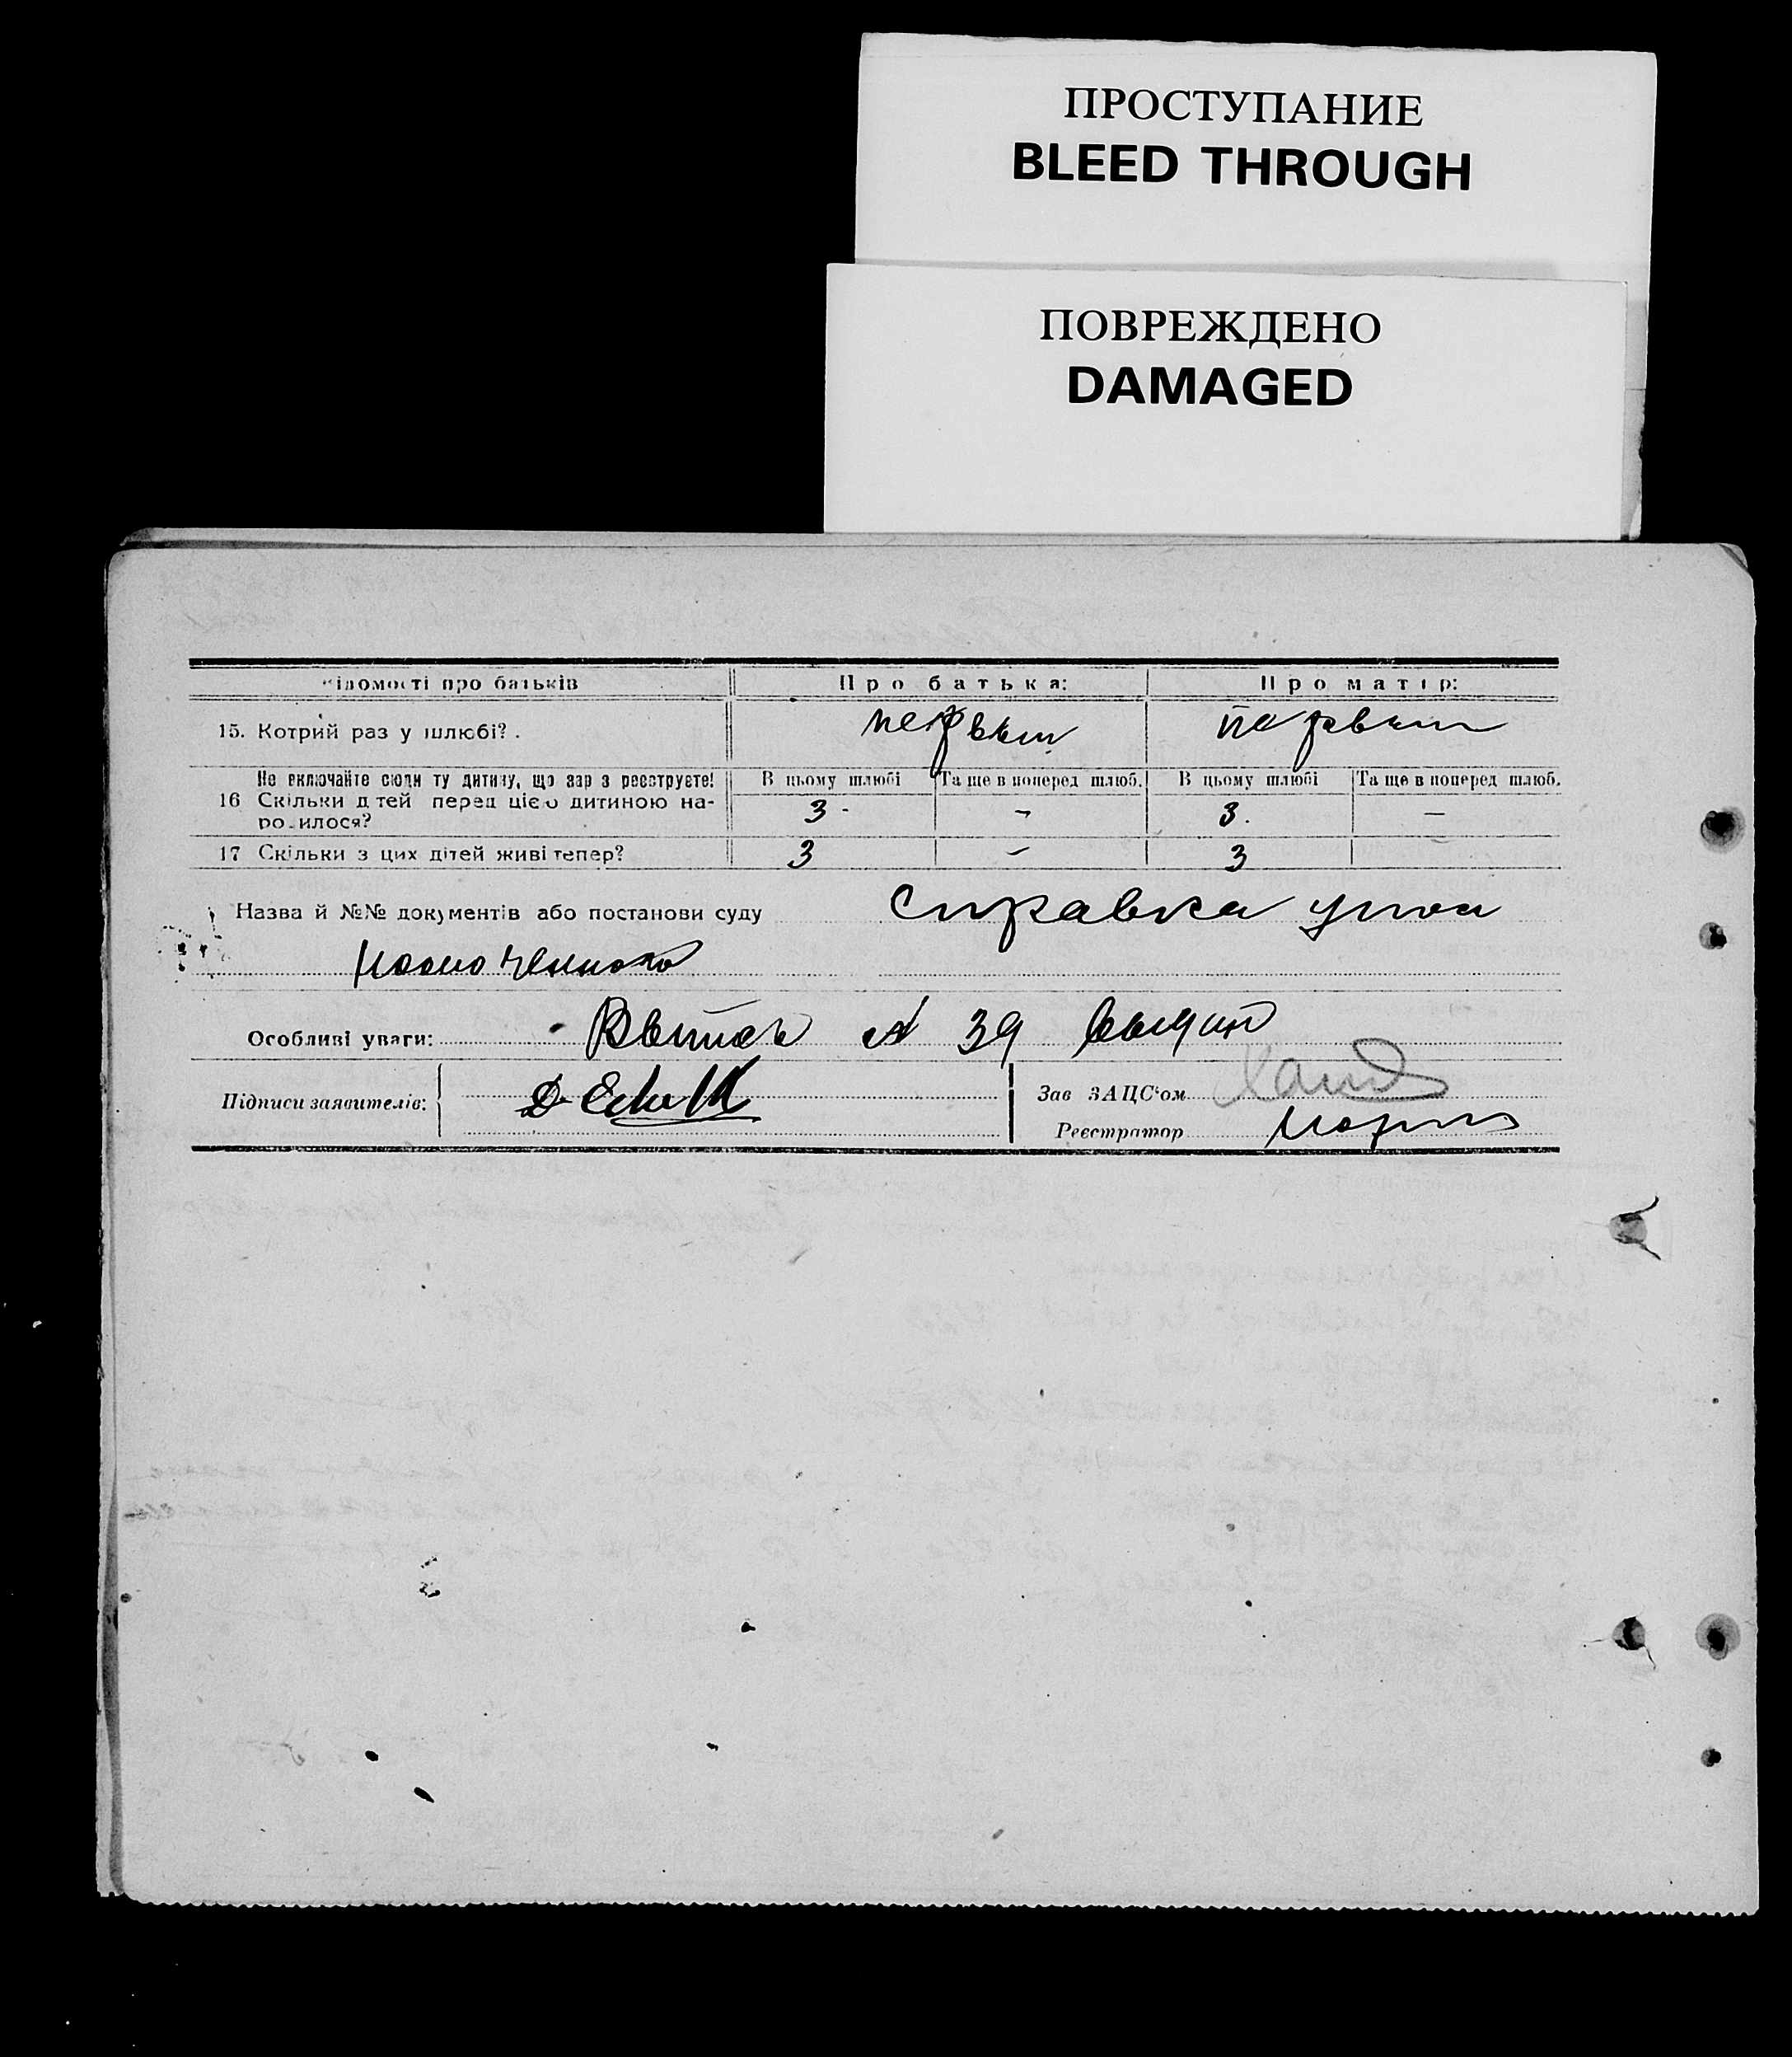 ПРОСТУПАНИЕ
BLEED THROUGH
ПОВРЕЖДЕНО
DAMAGED
ідомості про батьків Про батька: Про матір:
15. Котрий раз у шлюбі? . первым первым
Не включайте сюди ту дитину, що зар з реєструєте! В цьому шлюбі Та ще в поперед шлюб. В цьому шлюбі Та ще в поперед шлюб.
16 Скільки д тей перед цією дитиною на- 3 - - 3. —
ро илося?
17 Скільки з цих дітей живі тепер? 3 - 3
Назва й №№ документів або постанови суду Справка упол
номоченного
Особливі уваги: № 39
Підписи заявителів: Зав ЗАЦС'ом
Реєстратор